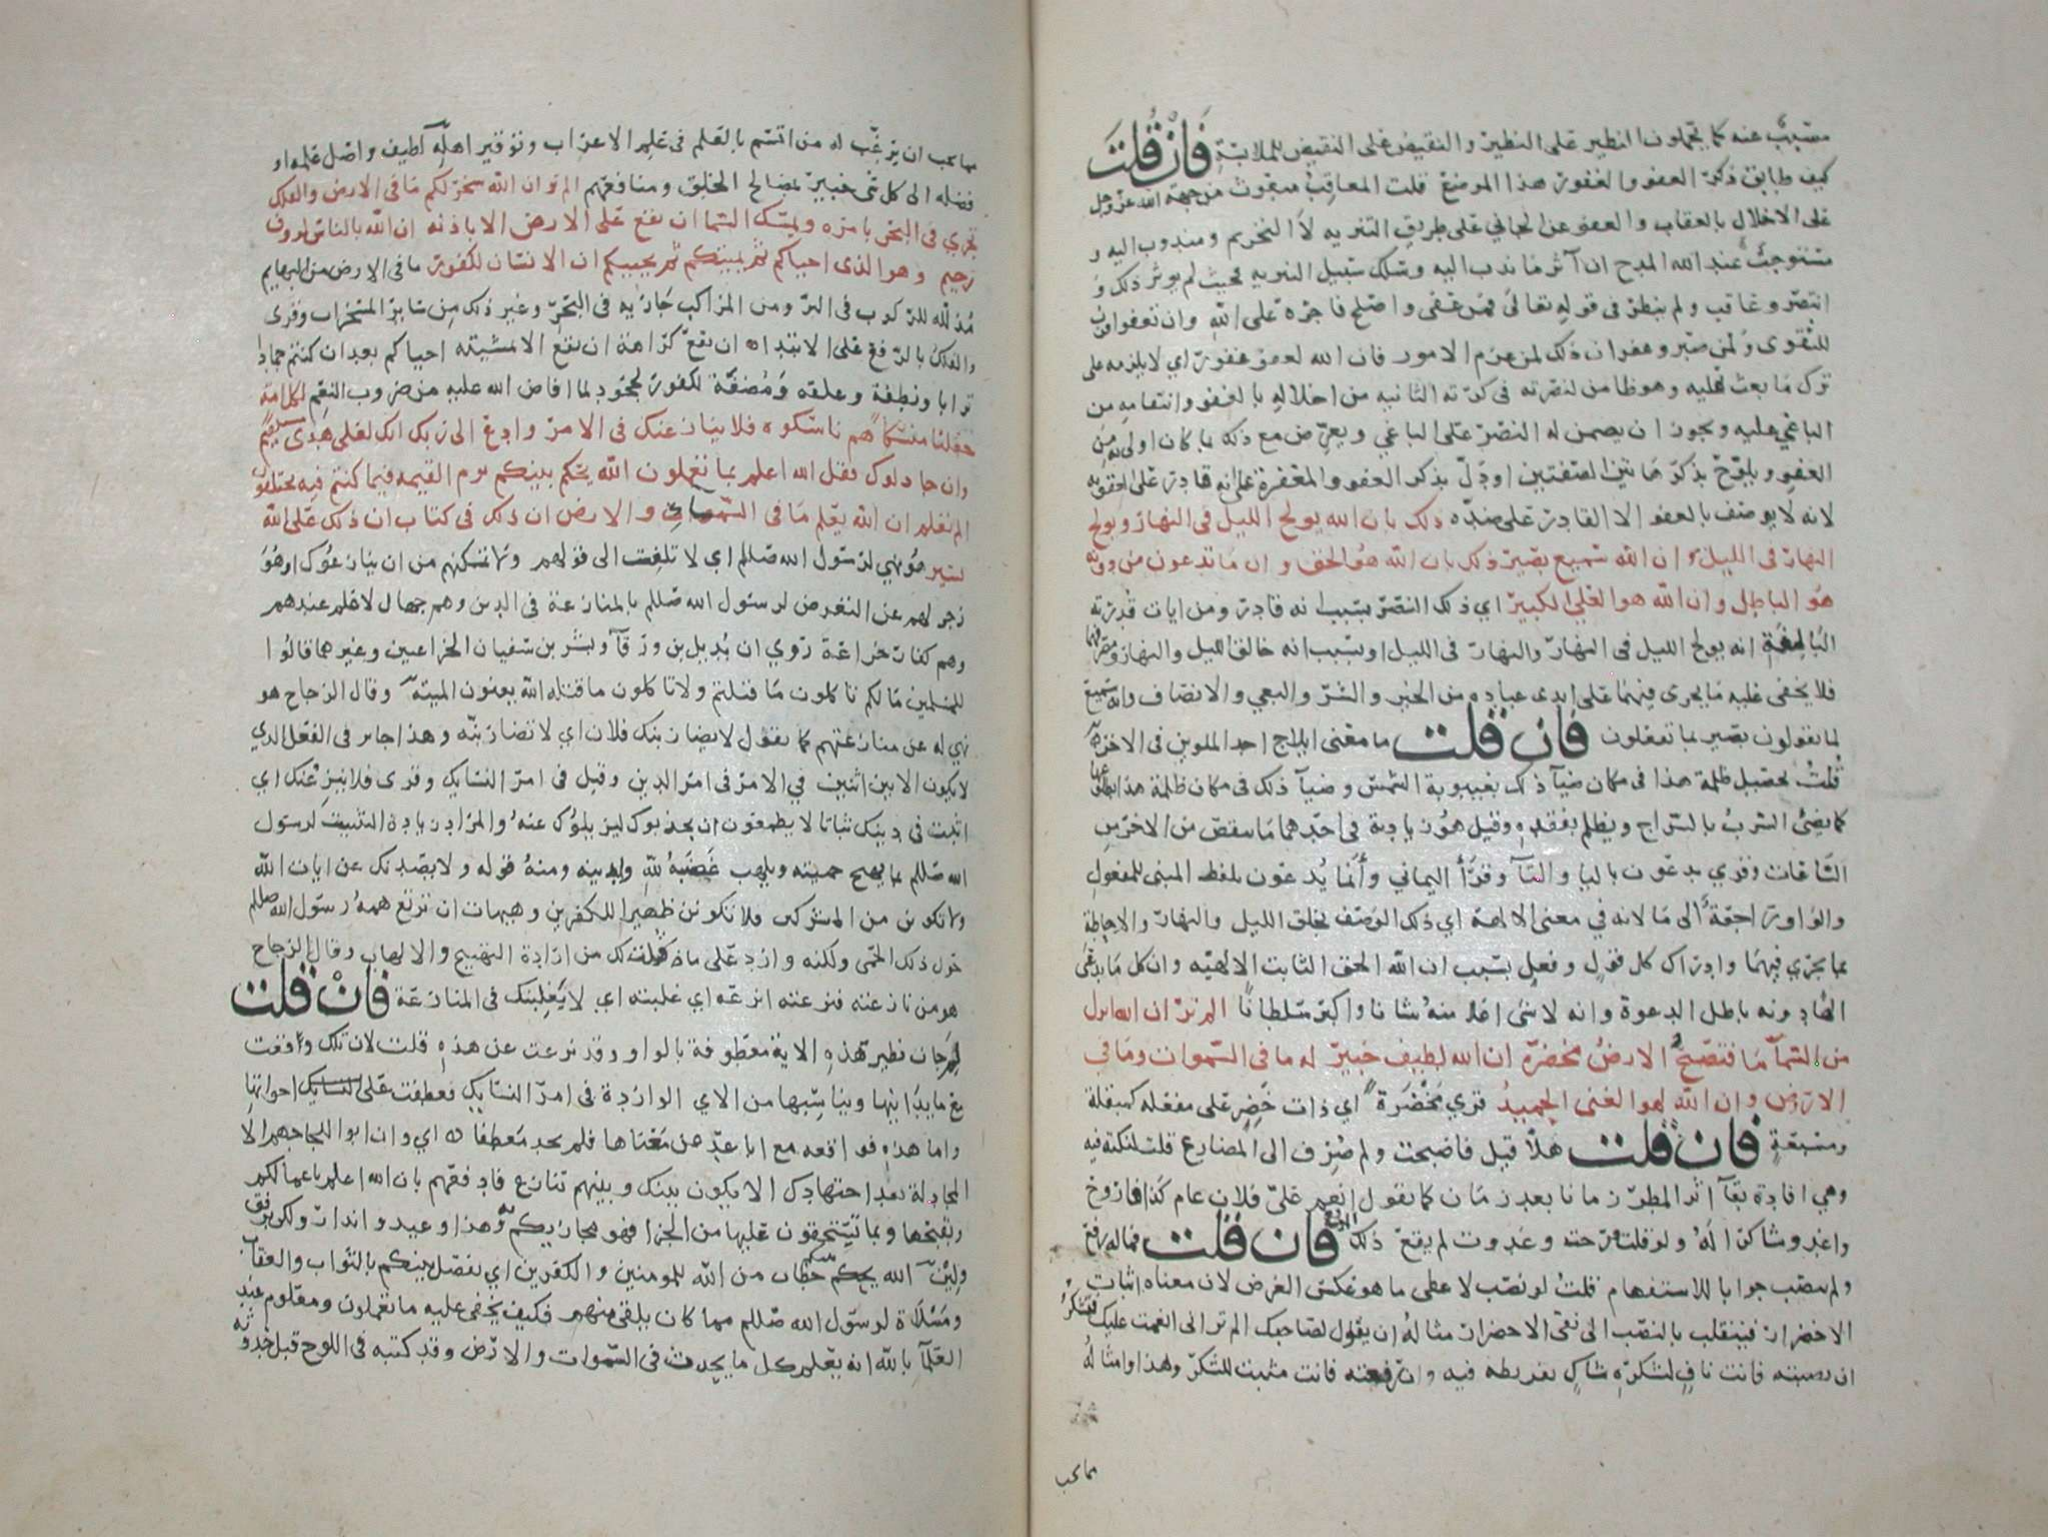 مسبب عنه كما يحملون النظير على النظير والنقيض على النقيض للملابسة فَاِنْ قُلتَ
كيف طابق ذكر العفو الغفور هذا الموضع قلت المعاقب مبعوث من جهة الله عز وجل
على الاخلال بالعقاب والعفو عن الجاني على طريق التنزيه لا التحريم ومندوب اليه و
مستوجب عند الله المدح ان آثر ما ندب اليه وسلك سبيل التنزيه فحيث لم يوثر ذلك و
انتصر وعاقب ولم ينظر في قوله تعالى فمن عفى واصلح فاجره على الله وان تعفوا اقرب
للتقوى ولمن صبر وغفر ان ذلك لمن عزم الامور فان الله لعفو غفور اي لا يلزمه على
ترك ما بعث عليه وهو ضامن لنصرته في كرته الثانيه من اخلاله بالعفو وانتقامه من
الباغي عليه ويجوز ان يضمن له النصر على الباغي ويعرض مع ذلك بما كان اولى به من
العفو ويلوح بذكر هاتين الصفتين او دل بذكر العفو والمغفرة على انه قادر على العقوبه
لانه لا يوصف بالعفو الا القادر على ضده ذلك بان الله يولج الليل في النهار ويولج
النهار في الليل وان الله سميع بصير ذلك بان الله هو الحق وان ما تدعون من دونه
هو الباطل وان الله هو العلي الكبير اي ذلك النصر بسبب انه قادر ومن ايات قدرته
البالغة انه يولج الليل في النهار والنهار في الليل او بسبب انه خالق الليل والنهار ومصرفهما
فلا يخفى عليه ما يجرى فيهما على ايدى عباده من الخير والشر والبغي والانصاف وانه سميع
لما يقولون بصير بما تفعلون فان قلت ما معنى ايلاج احد الملوين في الاخر
قلت تحصيل ظلمة هذا في مكان ضيآ ذلك بغيبوبة الشمس وضيآ ذلك في مكان ظلمة هذا بطلوعها
كما يضئ السرب بالسراج ويظلم بفقده وقيل هو زيادة في احدهما ما ينقص من الاخر من
الساعات وقري يدعون باليا والتآ وقرأ اليماني وأنما يُدعون بلفظ المبنى للمفعول
والواو راجعة الى ما لانه في معنى الالهة اي ذلك الوصف بخلق الليل والنهار والاحاطة
بما يجرى فيهما وادراك كل قول وفعل بسبب ان الله الحق الثابت الالهيه وان كل ما يدعى
الها دونه باطل الدعوة وانه لا شئ اعلا منه شانا واكبر سلطانا الم تر ان الله انزل
من السمآ مآ فتصبح الارض مخضرة ان الله لطيف خبير له ما في السموات وما في
الارض وان الله لهو الغني الحميد قري مَخْضَرَة اي ذات خَضِر على مفعله كمبقلة
ومسبعة فان قلت هلا قيل فاصبحت ولم صرف الى المضارع قلت لنكتة فيه
وهي افادة بقآ اثر المطر زمانا بعد زمان كما يقول انعم عليّ فلان عام كذا فاروح
واغدو شاكرا له ولو قلت فرحت وغدوت لم يقع ذلك الموقع فان قلت فما له رفع
ولم ينصب جوابا للاستفهام قلت لو نصب لاعطى ما هو عكس الغرض لان معناه اثبات
الاخضرار فينقلب بالنصب الى نفي الاخضرار مثاله ان يقول لصاحبك الم تر انى انعمت عليك فتشكر
ان نصبته فانت ناف لشكره شاك تفريطه فيه وان رفعته فانت مثبت للشكر وهذا وامثاله
مما يجب
مما يجب ان يرغب له من اتسم بالعلم في علم الاعراب وتوقير اهله لطيف واصل علمه او
فضله الى كل شى خبير بمصالح الخلق ومنافعهم الم تر ان الله سخر لكم ما في الارض والفلك
تجري في البحر بامره ويمسك السما ان تقع على الارض الا باذنه ان الله بالناس لروف
رحيم وهو الذى احياكم ثم يميتكم ثم يحييكم ان الانسان لكفور ما في الارض من البهايم
مذلله للركوب في البر ومن المراكب جاريه في البحر وغير ذلك من ساير المسخرات وقرى
والفلك بالرفع على الابتدا ان تقع كراهة ان تقع الا بمشيته احياكم بعد ان كنتم جمادا
ترابا ونطفة وعلقه ومُضغة لكفور لجحود لما افاض الله عليه من ضروب النعم لكل امة
جعلنا منسكا هم ناسكوه فلا ينازعنك في الامر وادع الى ربك انك لعلى هدى مستقيم
وان جادلوك فقل الله اعلم بما تعملون الله يحكم بينكم يوم القيمه فيما كنتم فيه تختلفون
الم تعلم ان الله يعلم ما في السمآ والارض ان ذلك في كتاب ان ذلك على الله
يسير هو نهي لرسول الله صللم اي لا تلتفت الى قولهم ولا تمكنهم من ان ينازعوك او هو
زجر لهم عن التعرض لرسول الله صللم بالمنازعة في الدين وهم جهال لا علم عندهم
وهم كفار خزاعة روي ان بُديل بن ورقآ وبشر بن سفيان الخزاعيين وغيرهما قالوا
للمسلمين ما لكم تاكلون ما قتلتم ولا تاكلون ما قتله الله يعنون الميته وقال الزجاج هو
نهي له عن منازعتهم كما تقول لا يضاربنك فلان اي لا تضاربنه وهذا جايز في الفعل الذي
لا يكون الا بين اثنين في الامر في امر الدين وقيل في امر النسايك وقرى فلا ينزعنك اي
اثبت في دينك ثباتا لا يطمعون ان يجذبوك ليزيلوك عنه والمراد زيادة التثبيت لرسول
الله صللم بما يهيج حميته ويلهب غضبه لله ولدينه ومنه قوله ولا يصدنك عن ايات الله
ولا تكونن من المشركين فلا تكونن ظهيرا للكفرين وهيهات ان ترتع همة رسول الله صللم
حول ذلك الحمى ولكنه وارد على ما قلت لك من ارادة التهييج والالهاب وقال الزجاج
هو من نازعته فنزعته انزعه اي غلبته اي لا يغلبنك في المنازعة فانْ قلت
لم جات نظير هذه الاية معطوفة بالواو وقد نزعت عن هذه قلت لان تلك وقعت
مع ما يدانيها ويناسبها من الاي الواردة في امر النسايك فعطفت على اخواتها
واما هذه فواقعه مع اباعد عن معناها فلم تجد معطفا اي وان ابوا للجاجهم الا
المجادلة بعد اجتهادك الا يكون بينك وبينهم تنازع فادفعهم بان الله اعلم باعمالكم
وبقبحها وبما تستحقون عليها من الجزا فهو مجازيكم به وهذا وعيد وانذار ولكن برفق
ولين الله يحكم بينكم خطاب من الله للمومنين والكفرين اي يفصل بينكم بالثواب والعقاب
ومسلاة لرسول الله صللم مما كان يلقى منهم فكيف يخفى عليه ما تعملون ومعلوم عند
العلمآ بالله انه يعلم كل ما يحدث في السموات والارض وقد كتبه في اللوح قبل حدوثه